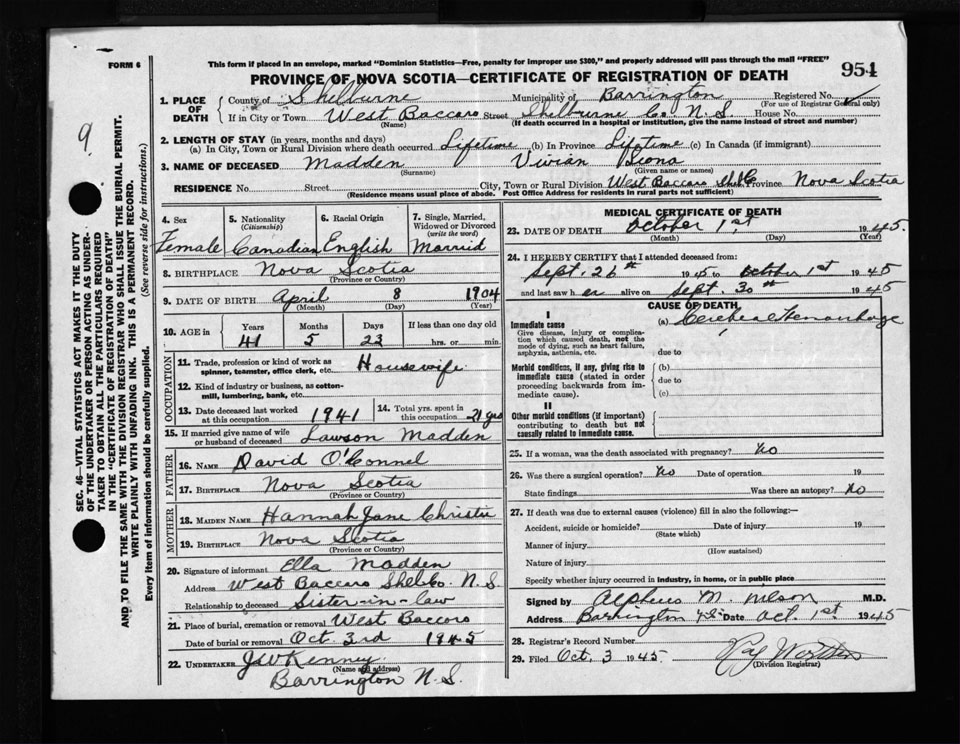 FORM 6
This form if placed in an envelope, marked "Dominion Statistics—Free, penalty for improper use $300," and properly addressed will pass through the mail "FREE"
PROVINCE OF NOVA SCOTIA—CERTIFICATE OF REGISTRATION OF DEATH
954
9
SEC. 46—VITAL STATISTICS ACT MAKES IT THE DUTY
OF THE UNDERTAKER OR PERSON ACTING AS UNDER-
TAKER TO OBTAIN ALL THE PARTICULARS REQUIRED
IN THE "CERTIFICATE OF REGISTRATION OF DEATH"
AND TO FILE THE SAME WITH THE DIVISION REGISTRAR WHO SHALL ISSUE THE BURIAL PERMIT.
WRITE PLAINLY WITH UNFADING INK. THIS IS A PERMANENT RECORD.
Every item of information should be carefully supplied. (See reverse side for instructions.)
1. PLACE OF DEATH
County of Shelburne Municipality of Barrington Registered No.
(For use of Registrar General only)
If in City or Town West Baccaro Street Shelburne Co. N.S. House No.
(Name) (If death occurred in a hospital or institution, give the name instead of street and number)
2. LENGTH OF STAY (in years, months and days)
(a) In City, Town or Rural Division where death occurred Lifetime (b) In Province Lifetime (c) In Canada (if immigrant)
3. NAME OF DECEASED Madden Vivian
(Surname) (Given name or names)
RESIDENCE No. Street City, Town or Rural Division West Baccaro Shel Co Province Nova Scotia
(Residence means usual place of abode. Post Office Address for residents in rural parts not sufficient)
4. Sex Female
5. Nationality (Citizenship) Canadian
6. Racial Origin English
7. Single, Married, Widowed or Divorced (write the word) Married
8. BIRTHPLACE Nova Scotia
(Province or Country)
9. DATE OF BIRTH April 8 1904
(Month) (Day) (Year)
10. AGE in Years Months Days If less than one day old
41 5 23 hrs. or min.
OCCUPATION
11. Trade, profession or kind of work as spinner, teamster, office clerk, etc. Housewife
12. Kind of industry or business, as cotton-mill, lumbering, bank, etc.
13. Date deceased last worked at this occupation 1941
14. Total yrs. spent in this occupation 21 yrs
15. If married give name of wife or husband of deceased Lawson Madden
FATHER
16. NAME David O'Connel
17. BIRTHPLACE Nova Scotia
(Province or Country)
MOTHER
18. MAIDEN NAME Hannah Jane Christie
19. BIRTHPLACE Nova Scotia
(Province or Country)
20. Signature of informant Ella Madden
Address West Baccaro Shel Co. N.S
Relationship to deceased Sister-in-law
21. Place of burial, cremation or removal West Baccaro
Date of burial or removal Oct. 3rd 1945
22. UNDERTAKER Kenney
(Name and address)
Barrington N.S.
MEDICAL CERTIFICATE OF DEATH
23. DATE OF DEATH October 1st 1945
(Month) (Day) (Year)
24. I HEREBY CERTIFY that I attended deceased from:
Sept. 26th 1945 to October 1st 1945
and last saw her alive on Sept. 30th 1945
CAUSE OF DEATH
I
Immediate cause (a) Cerebral Hemorrhage
Give disease, injury or complication which caused death, not the mode of dying, such as heart failure, asphyxia, asthenia, etc.
due to
Morbid conditions, if any, giving rise to immediate cause (stated in order proceeding backwards from immediate cause).
(b)
due to
(c)
II
Other morbid conditions (if important) contributing to death but not causally related to immediate cause.
25. If a woman, was the death associated with pregnancy? No
26. Was there a surgical operation? No Date of operation 19
State findings Was there an autopsy? No
27. If death was due to external causes (violence) fill in also the following:—
Accident, suicide or homicide? Date of injury 19
(State which)
Manner of injury
(How sustained)
Nature of injury
Specify whether injury occurred in industry, in home, or in public place
Signed by Alpheus M. Wilson M.D.
Address Barrington N.S. Date Oct. 1st 1945
28. Registrar's Record Number
29. Filed Oct. 3 1945
(Division Registrar)